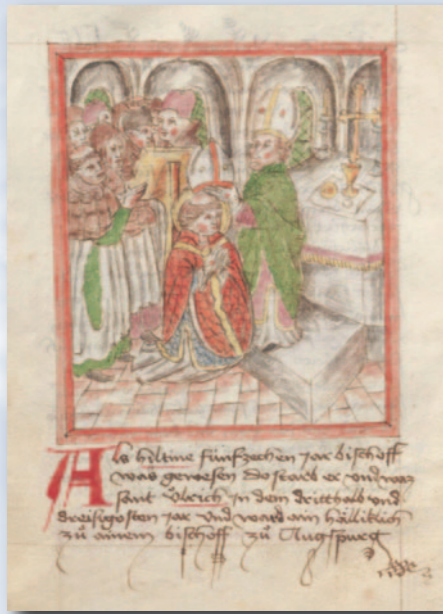 Als hiltine fünfzechen jar bischoff
was gewesen do starb er vnd waz
sant Ůlrich in dem dritthalb vnd
dreisigosten jar vnd ward ain hälliklich
zů ainem bischoff zů Augspurg